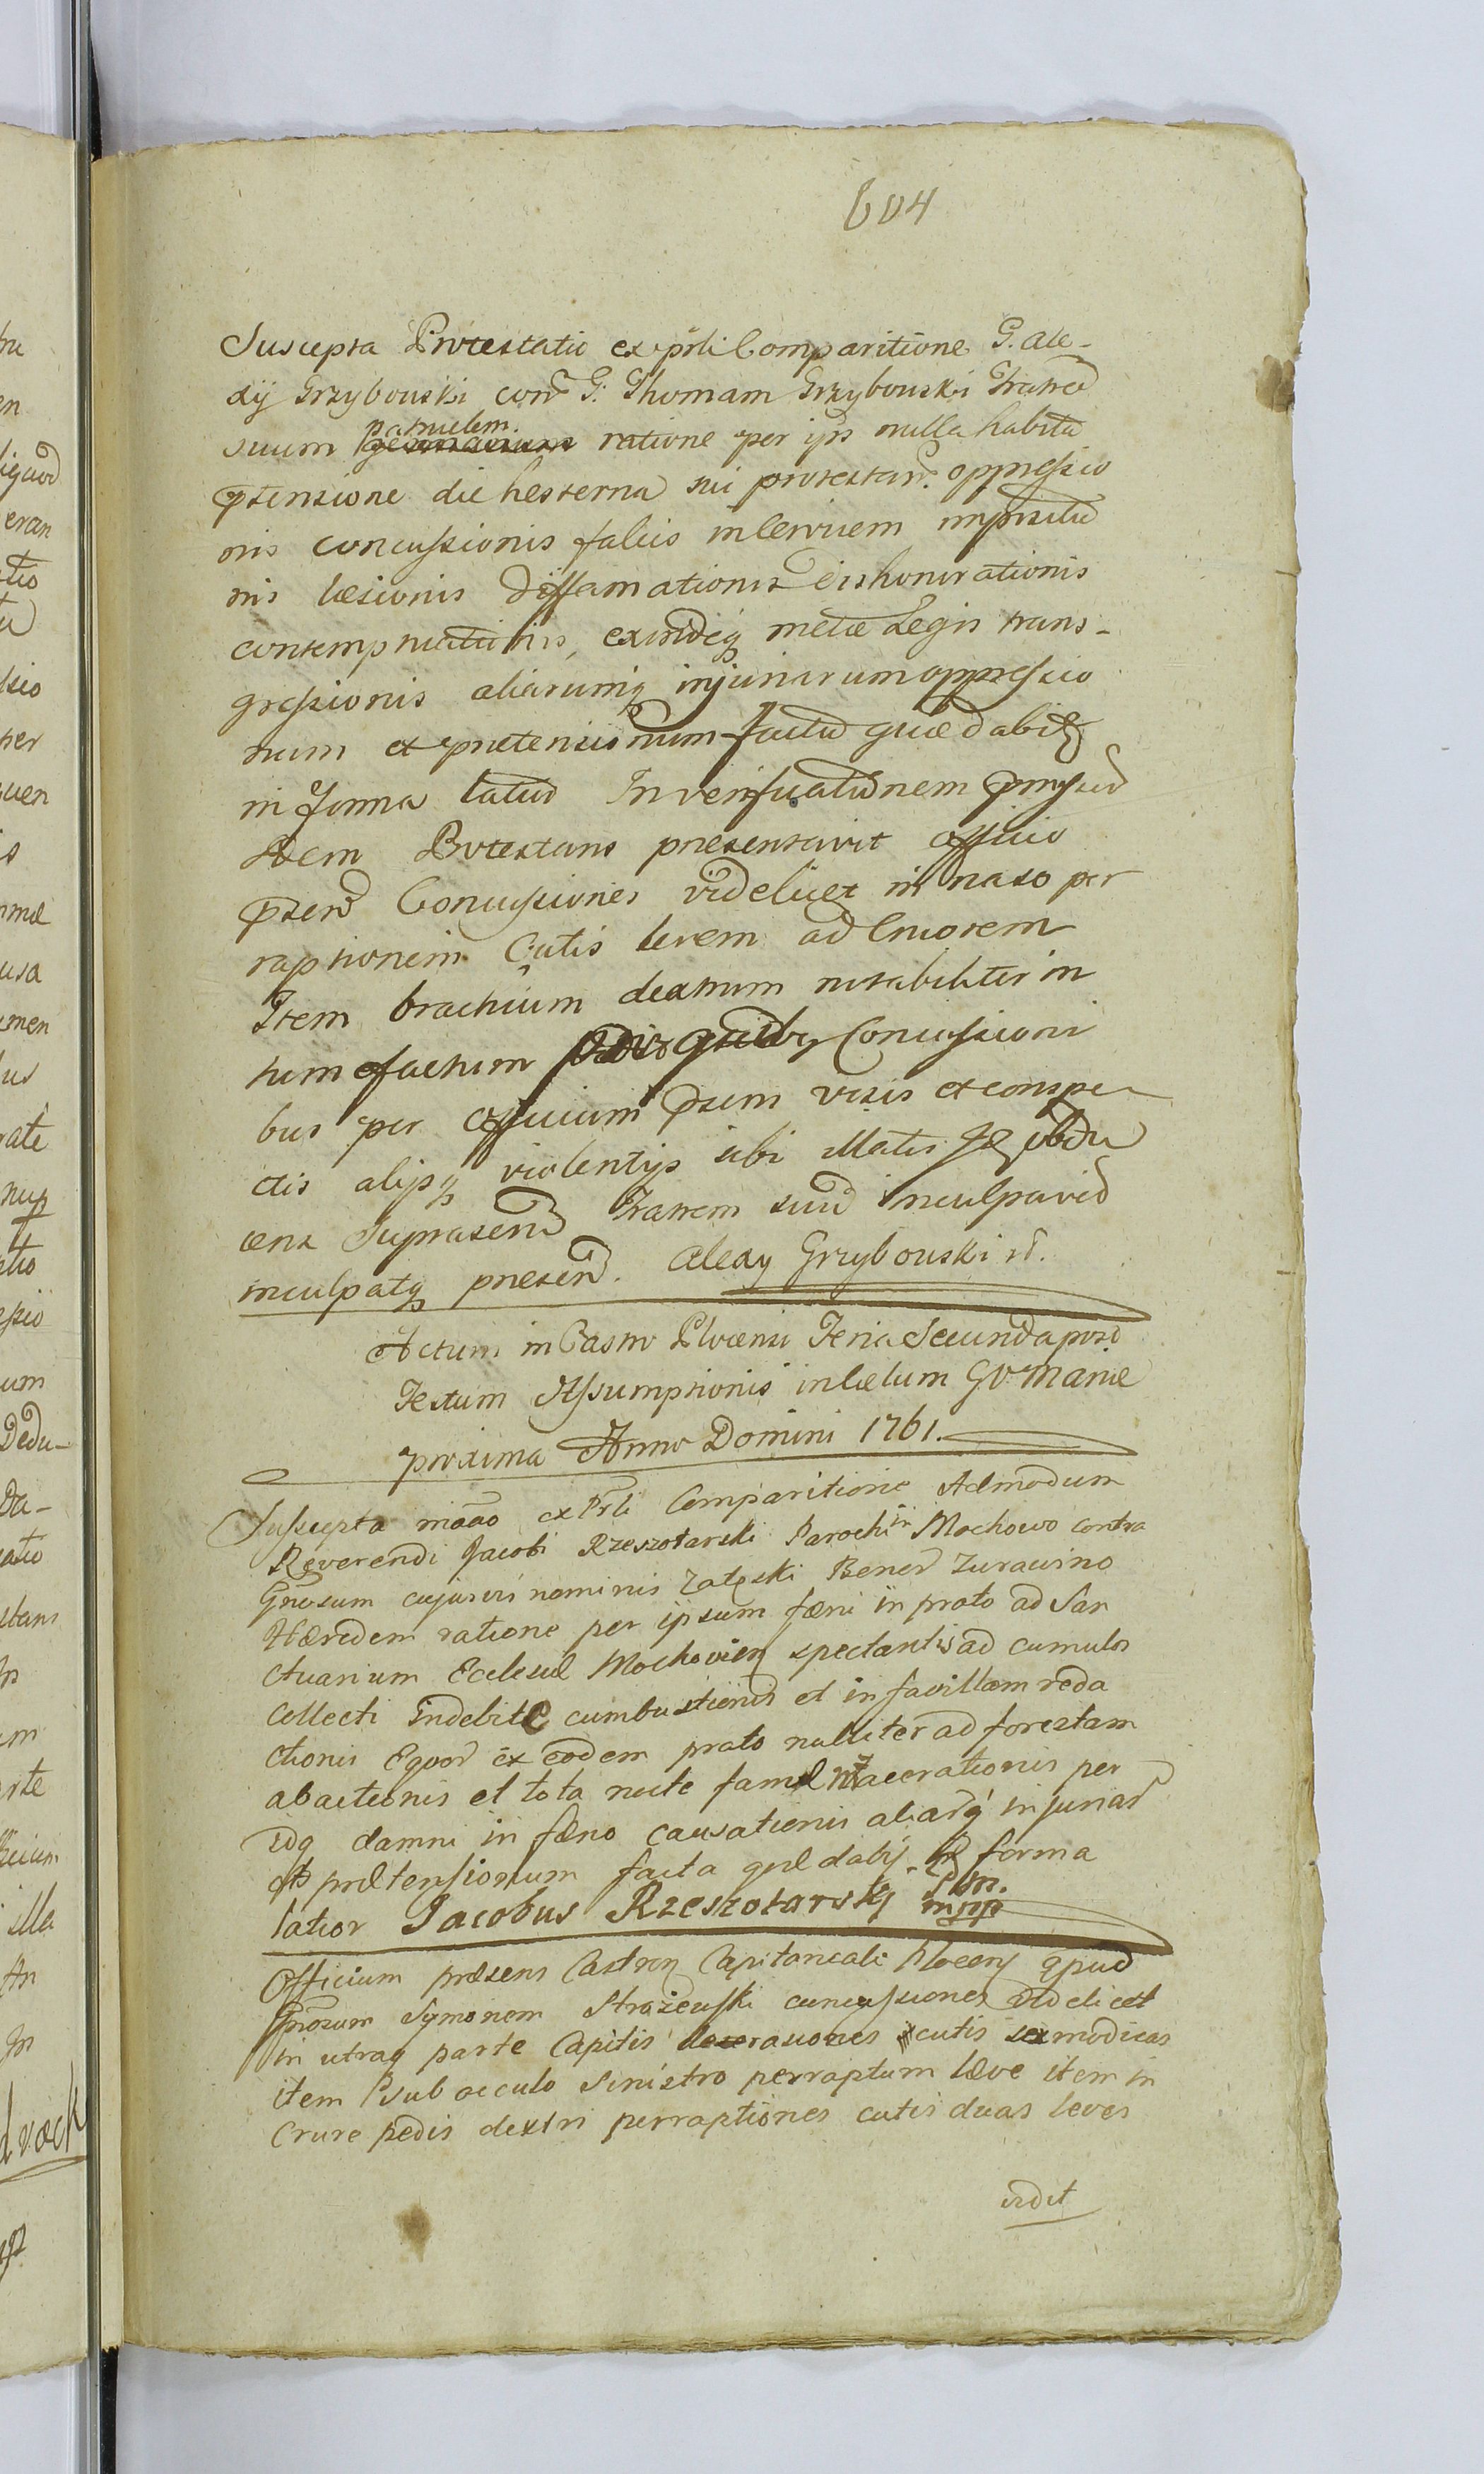 604
Suscepta Protestatio ex pñli Comparitione G. Ale-
xÿ Grzybouski con͠ G: Thomam Grzybouski Fratre͠
suum patruelem germanum ratione per ips nulla habita
p̄tensione die hesterna sui protestan͠. oppressio
nis concussionis falcis in cervicem impositio
nis læsionis diffamationis dishonorationis
contemptuationis, exindeq metæ Legis trans-
gressionis aliarumq injuriarum oppressio
num et prætensionum facta quæ dabit͠
in forma latio͠ In verificationem
Idem Protestans præsentavit officio
p̄sen͠ Concussiones videlicet in naso per
raptionem Cutis levem ad Cruorem
Item brachium dextrum notabiliter in
tumefactum quibq Concussioni
bus per Officium p̄sens visis et conspe
ctis alijsq violentijs sibi illatis obdu
cens Suprasen͠ Fratrem suu͠ inculpavit
inculpatq præsen͠. Alexy Grzybouski
Actum in Castro Plocensi Feria Secunda post
Festum Assumptionis in Cælum GV Mariæ
proxima Anno Domini 1761.
Suscepta ma͠ao ex Pñli Comparitione Admodum
Reverendi Jacobi Rzeszotarski Parochi in Mochowo contra
Gñosum cujusvis nominis Załęski Bonor͠ Zurawino
Hæredem ratione per ipsum fæni in prato ad San
ctuarium Eclesiæ Mochovien spectantis ad cumulos
Collecti indebite cumbustionis et in favillam reda
ctionis Equor͠ ex eodem prato nulliter ad forestam
abactionis et tota nocte famæ macerationis per
idq damni in fæno causationis aliarq injuriar͠
et prætensionum facta quæ dabit͠ in forma
latior Jacobus Rzeszotarsky mpp
Officium præsens Castren Capitaneale Plocen apud
Gñosum Symonem Strazeuski concussiones videlicet
in utraq parte Capitis rasiones cutis sex modicas
item sub occulo sinistro perraptum læve item in
Crure pedis dextri perraptiones cutis duas leves
vidit